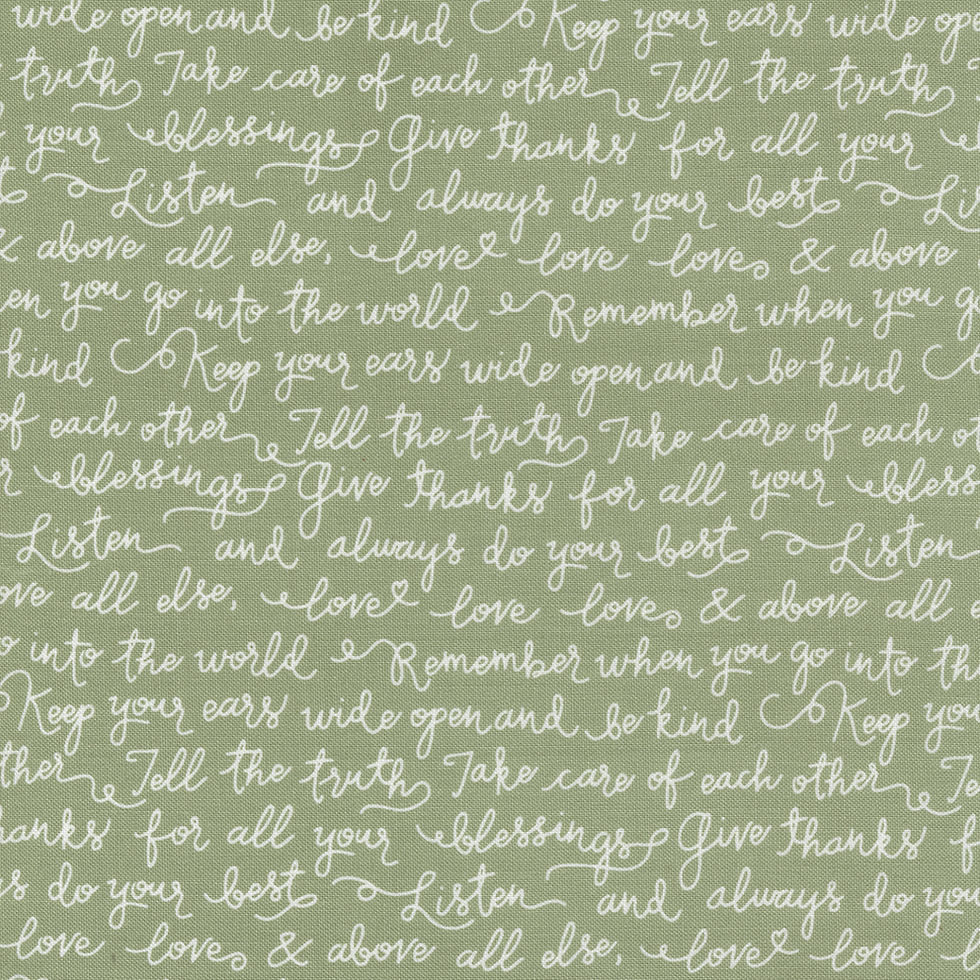 wide open and be kind Keep your ears wide
truth Take care of each other Tell the truth
your blessings Give thanks for all your
Listen and always do your best
& above all else, love love love & above
you go into the world Remember when you
kind Keep your ears wide open and be kind
of each other Tell the truth Take care of each
blessings Give thanks for all your
Listen and always do your best Listen
all else, love love love & above all
into the world Remember when you go into
Keep your ears wide open and be kind Keep
Tell the truth Take care of each other
for all your blessings Give thanks
do your best Listen and always do
love love & above all else, love love